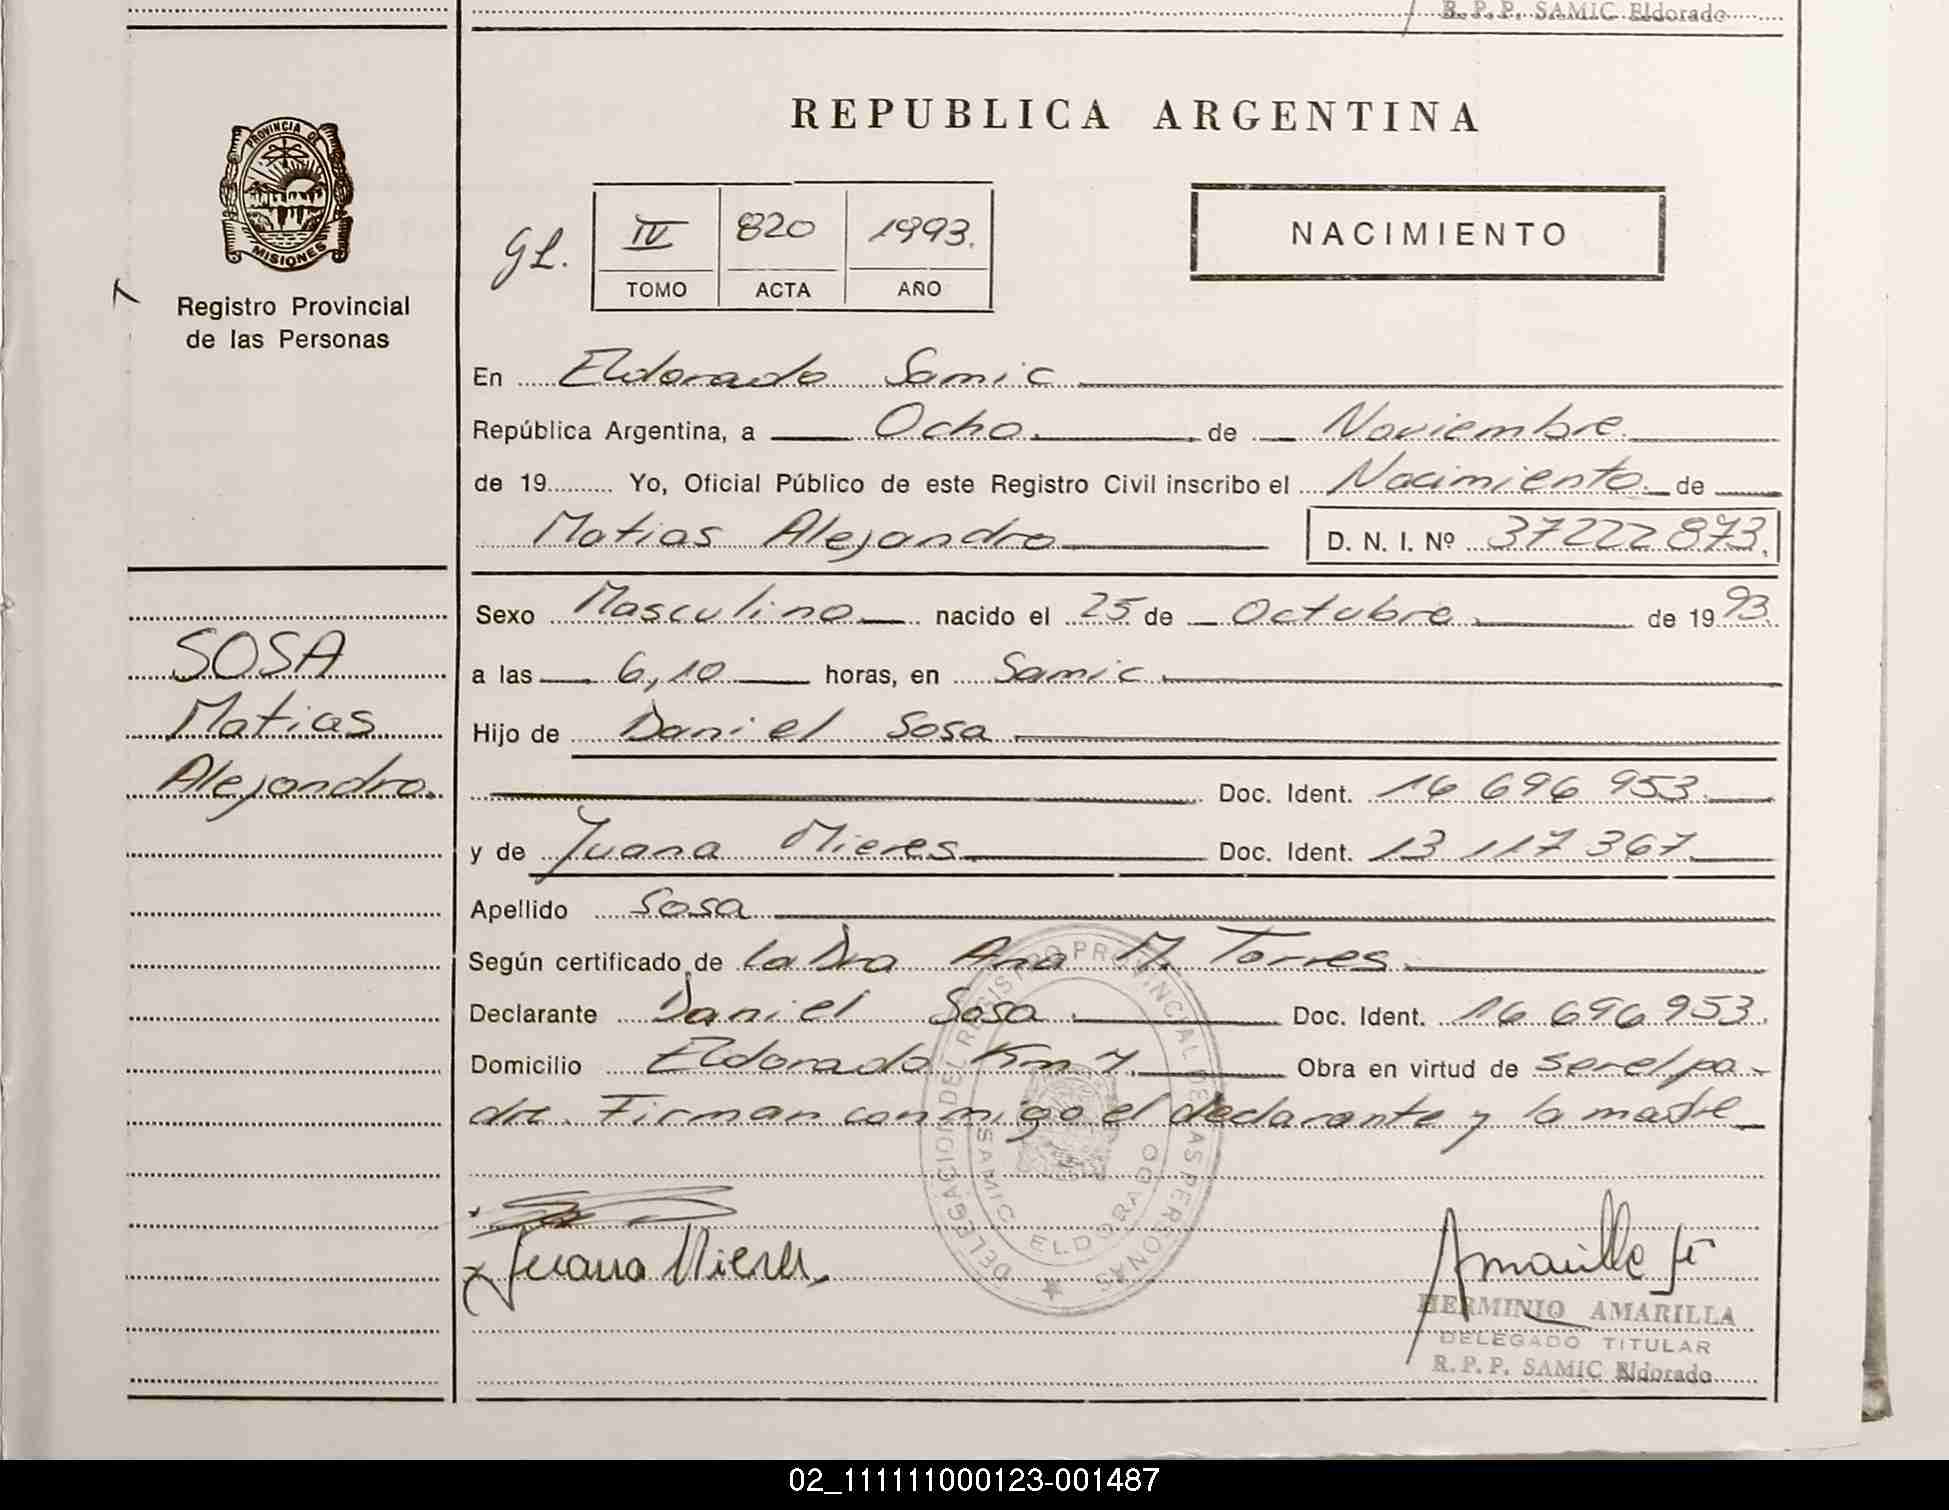 R. P. P. SAMIC Eldorado
REPUBLICA ARGENTINA
PROVINCIA DE
MISIONES
Registro Provincial
de las Personas
GL.
IV 820 1993.
TOMO ACTA AÑO
NACIMIENTO
En Eldorado Samic
República Argentina, a Ocho. de Noviembre.
de 19 Yo, Oficial Público de este Registro Civil inscribo el Nacimiento. de
Matias Alejandro D. N. I. Nº 37222873.
SOSA
Matias
Alejandro.
Sexo Masculino nacido el 25 de Octubre de 1993.
a las 6,10 horas, en Samic
Hijo de Daniel Sosa
Doc. Ident. 16 696 953.
y de Juana Mieres Doc. Ident. 13 117 367
Apellido Sosa
Según certificado de la Dra Ana M. Torres.
Declarante Daniel Sosa. Doc. Ident. 16 696 953.
Domicilio Eldorado Km 7. Obra en virtud de ser el pa-
dre. Firman conmigo el declarante y la madre
DELEGACION DEL REGISTRO PROVINCIAL DE LAS PERSONAS
SAMIC ELDORADO
Juana Mieres
HERMINIO AMARILLA
DELEGADO TITULAR
R. P. P. SAMIC Eldorado
02_111111000123-001487